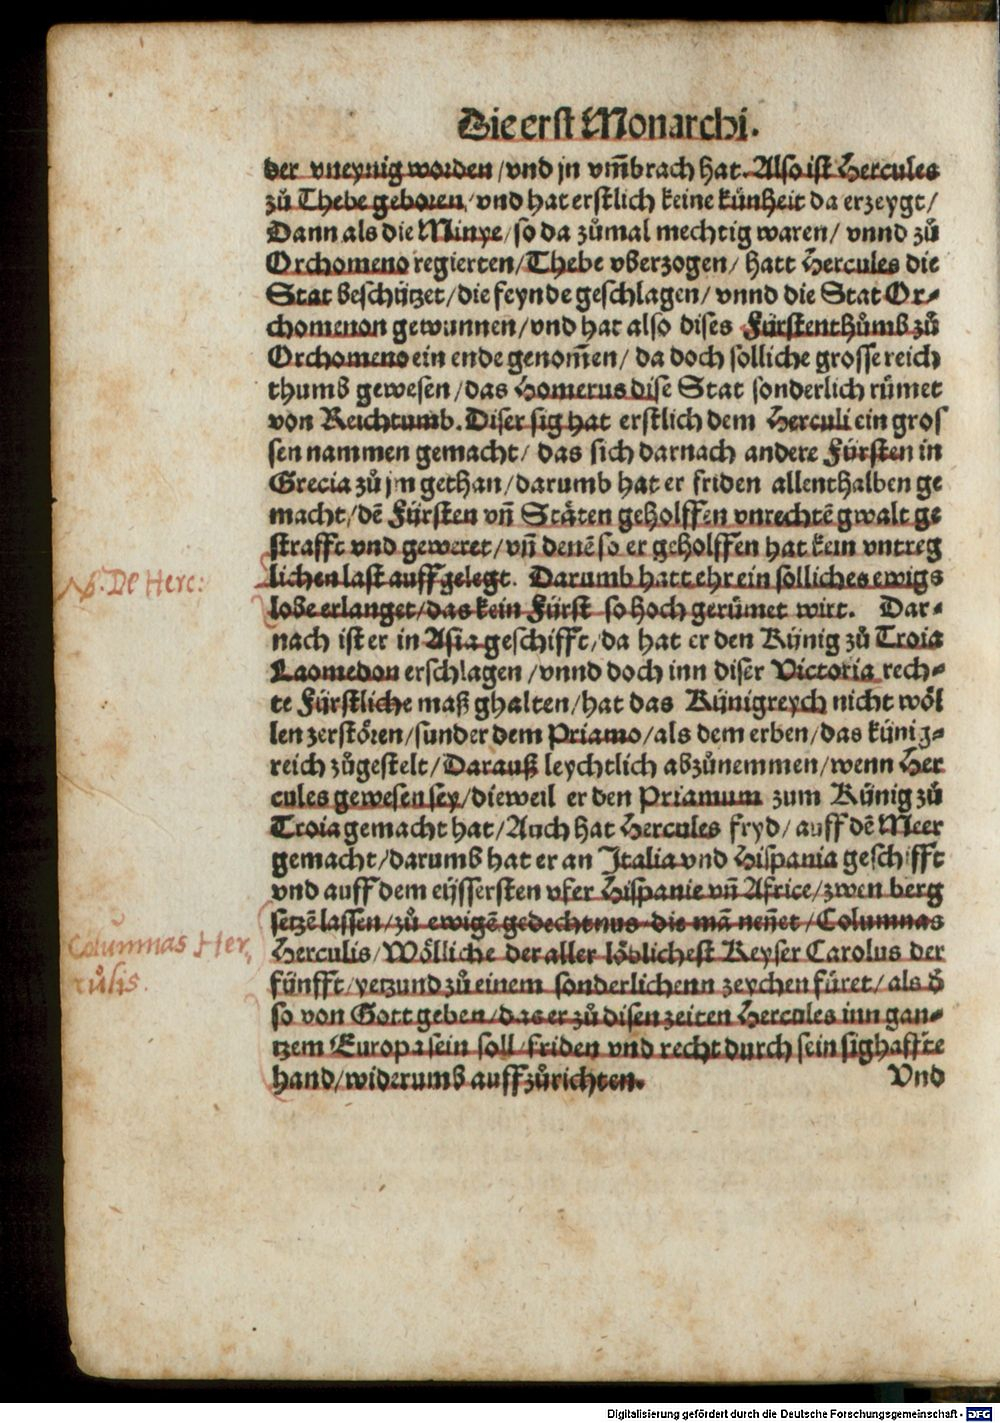 Die erst Monarchi.
der vneynig worden/vnd jn vm̃bracht hat. Also ist Hercules
zů Thebe geboren/vnd hat erstlich keine künheit da erzeygt/
Dann als die Minye/so da zůmal mechtig waren/ vnnd zů
Orchomeno regierten/Thebe vberzogen/ hatt Hercules die
Stat beschützet/die feynde geschlagen/ vnnd die Stat Or⸗
chomenon gewunnen/vnd hat also dises Fürstenthůmb zů
Orchomeno ein ende genom̃en/ da doch solliche grosse reich
thumb gewesen/das Homerus dise Stat sonderlich rümet
von Reichtumb. Diser sig hat erstlich dem Herculi ein gros
sen nammen gemacht/ das sich darnach andere Fürsten in
Grecia zů jm gethan/darumb hat er friden allenthalben ge
macht/dē Fürsten vñ Stäten geholffen vnrechtē gwalt ge
strafft vnd geweret/vñ denē so er geholffen hat kein vntreg
lichen last auffgelegt. Darumb hatt ehr ein solliches ewigs
NB. De Herc:
lobe erlanget/das kein Fürst so hoch gerümet wirt. Dar⸗
nach ist er in Asia geschifft/da hat er den Künig zů Troia
Laomedon erschlagen/vnnd doch inn diser Victoria rech⸗
te Fürstliche maß ghalten/hat das Künigreych nicht wöl
len zerstören/sunder dem Priamo/als dem erben/das künig⸗
reich zůgestelt/Darauß leychtlich abzůnemmen/wenn Her
cules gewesen sey/dieweil er den Priamum zum Künig zů
Troia gemacht hat/Auch hat Hercules fryd/ auff dē Meer
gemacht/darumb hat er an Italia vnd Hispania geschifft
vnd auff dem eüssersten vfer Hispanie vñ Africe/zwen berg
setzē lassen/zů ewigē gedechtnus die mā neñet/Columnas
Columnas Her,
Herculis/Wölliche der aller löblichest Keyser Carolus der
culis.
fünfft/yetzund zů einem sonderlichenn zeychen füret/als d̕
so von Gott geben/das er zů disen zeiten Hercules inn gan⸗
tzem Europa sein soll/friden vnd recht durch sein sighaffte
hand/widerumb auffzůrichten.
Vnd
Digitalisierung gefördert durch die Deutsche Forschungsgemeinschaft - DFG